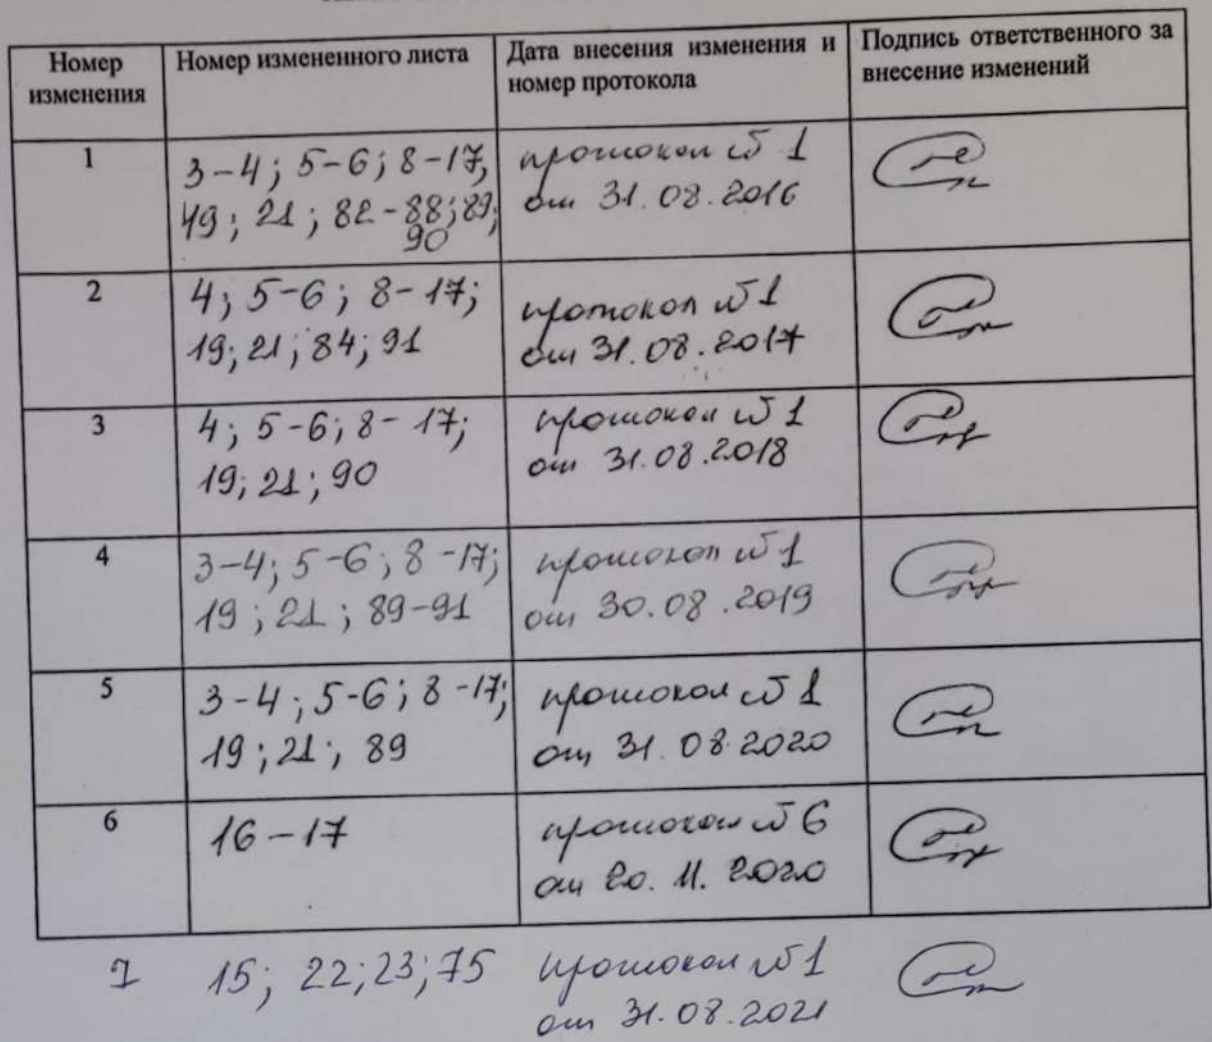 Номер изменения
Номер измененного листа
Дата внесения изменения и
номер протокола
Подпись ответственного за
внесение изменений
1
3-4; 5-6; 8-17,
49; 21; 82-88; 89;
90
протокол № 1
от 31.08.2016
2
4; 5-6; 8-17;
19; 21; 84; 91
протокол № 1
от 31.08.2017
3
4; 5-6; 8-17;
19; 21; 90
протокол № 1
от 31.08.2018
4
3-4; 5-6; 8-17;
19; 21; 89-91
протокол № 1
от 30.08.2019
5
3-4; 5-6; 8-17;
19; 21; 89
протокол № 1
от 31.08.2020
6
16-17
протокол № 6
от 20.11.2020
7
15; 22; 23; 75
протокол № 1
от 31.08.2021